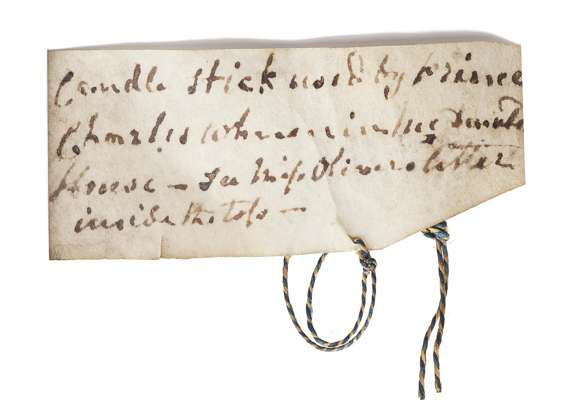 Candle stick used by Prince
Charles when in
House – See Miss Olivers letter
inside the top –